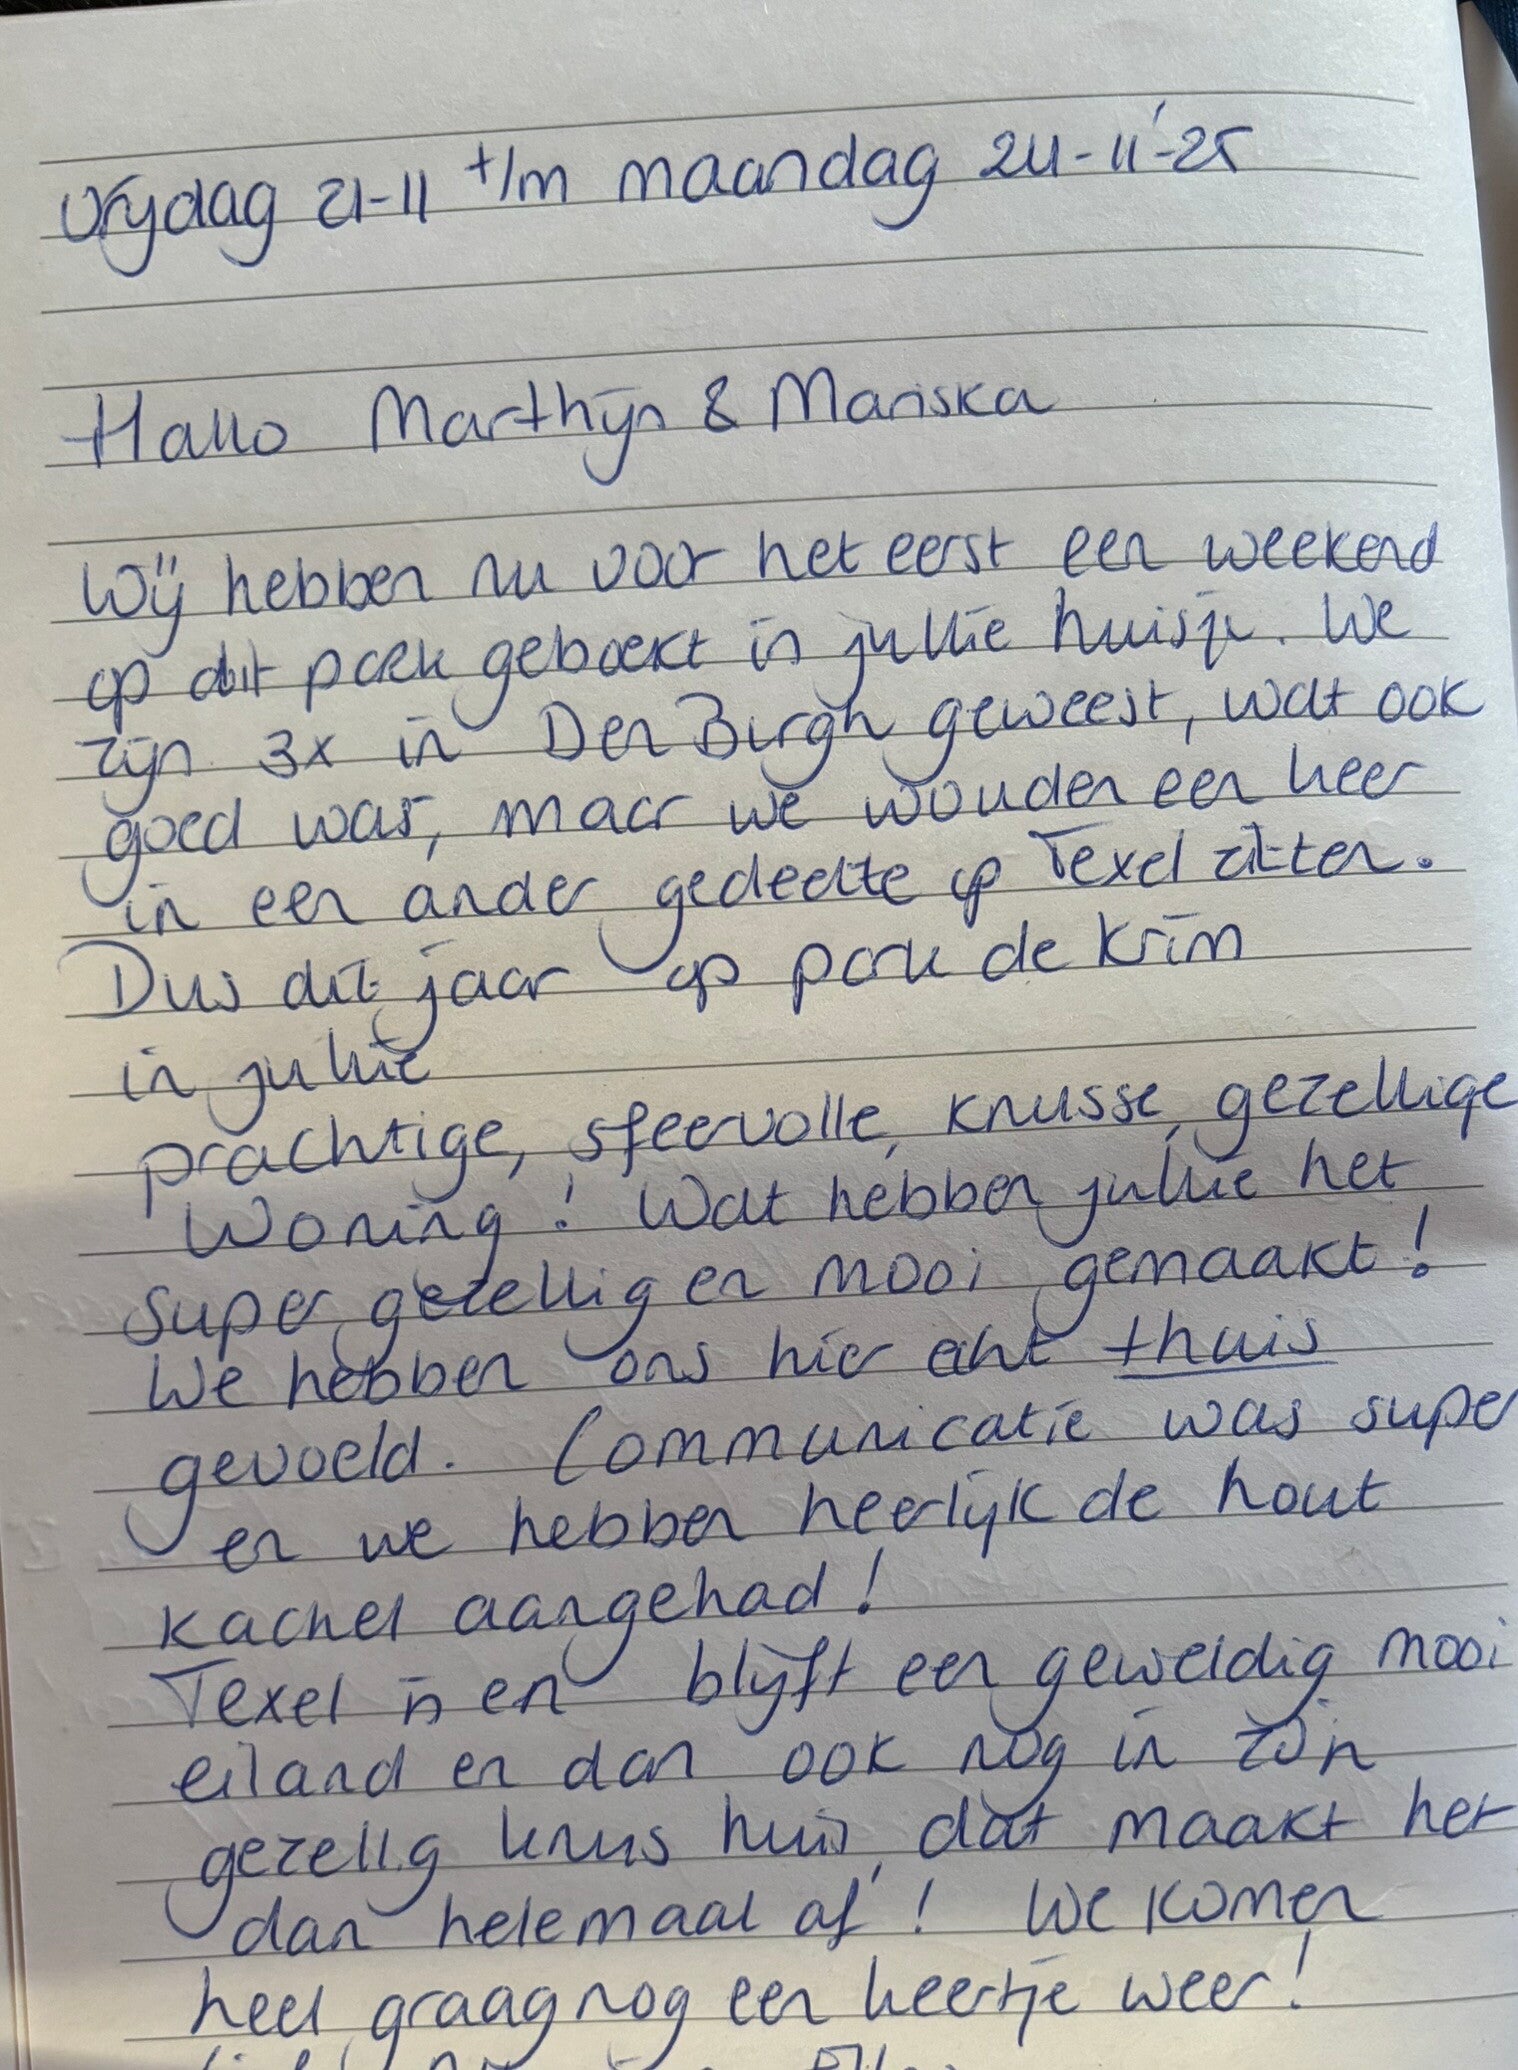 vrijdag 21-11 t/m maandag 24-11-'25
Hallo Marthijn & Mariska
Wij hebben nu voor het eerst een weekend
op dit park geboekt in jullie huisje. We
zijn 3x in Den Burgh geweest, wat ook
goed was, maar we wouden een keer
in een ander gedeelte op Texel zitten.
Dus dit jaar op park de Krim
in jullie
prachtige, sfeervolle, knusse, gezellige
woning! Wat hebben jullie het
super gezellig en mooi gemaakt!
We hebben ons hier echt thuis
gevoeld. Communicatie was super
en we hebben heerlijk de hout
kachel aangehad!
Texel is en blijft een geweldig mooi
eiland en dan ook nog in zo'n
gezellig knus huis, dat maakt het
dan helemaal af! We komen
heel graag nog een keertje weer!